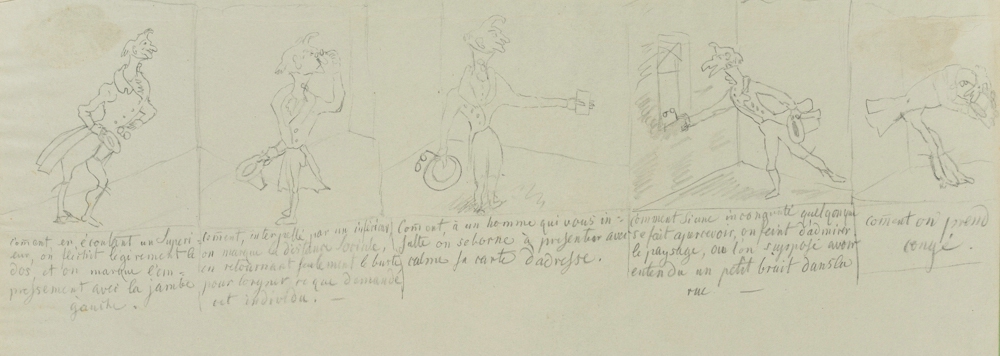 coment en écoutant un Superi-
eur, on fléchit légèrement le
dos, et on marque l'em-
pressement avec la jambe
gauche.
Coment, interpellé par un inférieur
on marque la distance sociale,
en retournant seulement le buste
pour lorgner ce que demande
cet individu. —
Coment, à un homme qui vous in-
sulte on se borne à présenter avec
calme sa carte d'adresse.
comment si une incongruité quelqonque
se fait apercevoir, on feint d'admirer
le paysage, ou l'on suppose avoir
entendu un petit bruit dans la
rue —
coment on prend
congé.